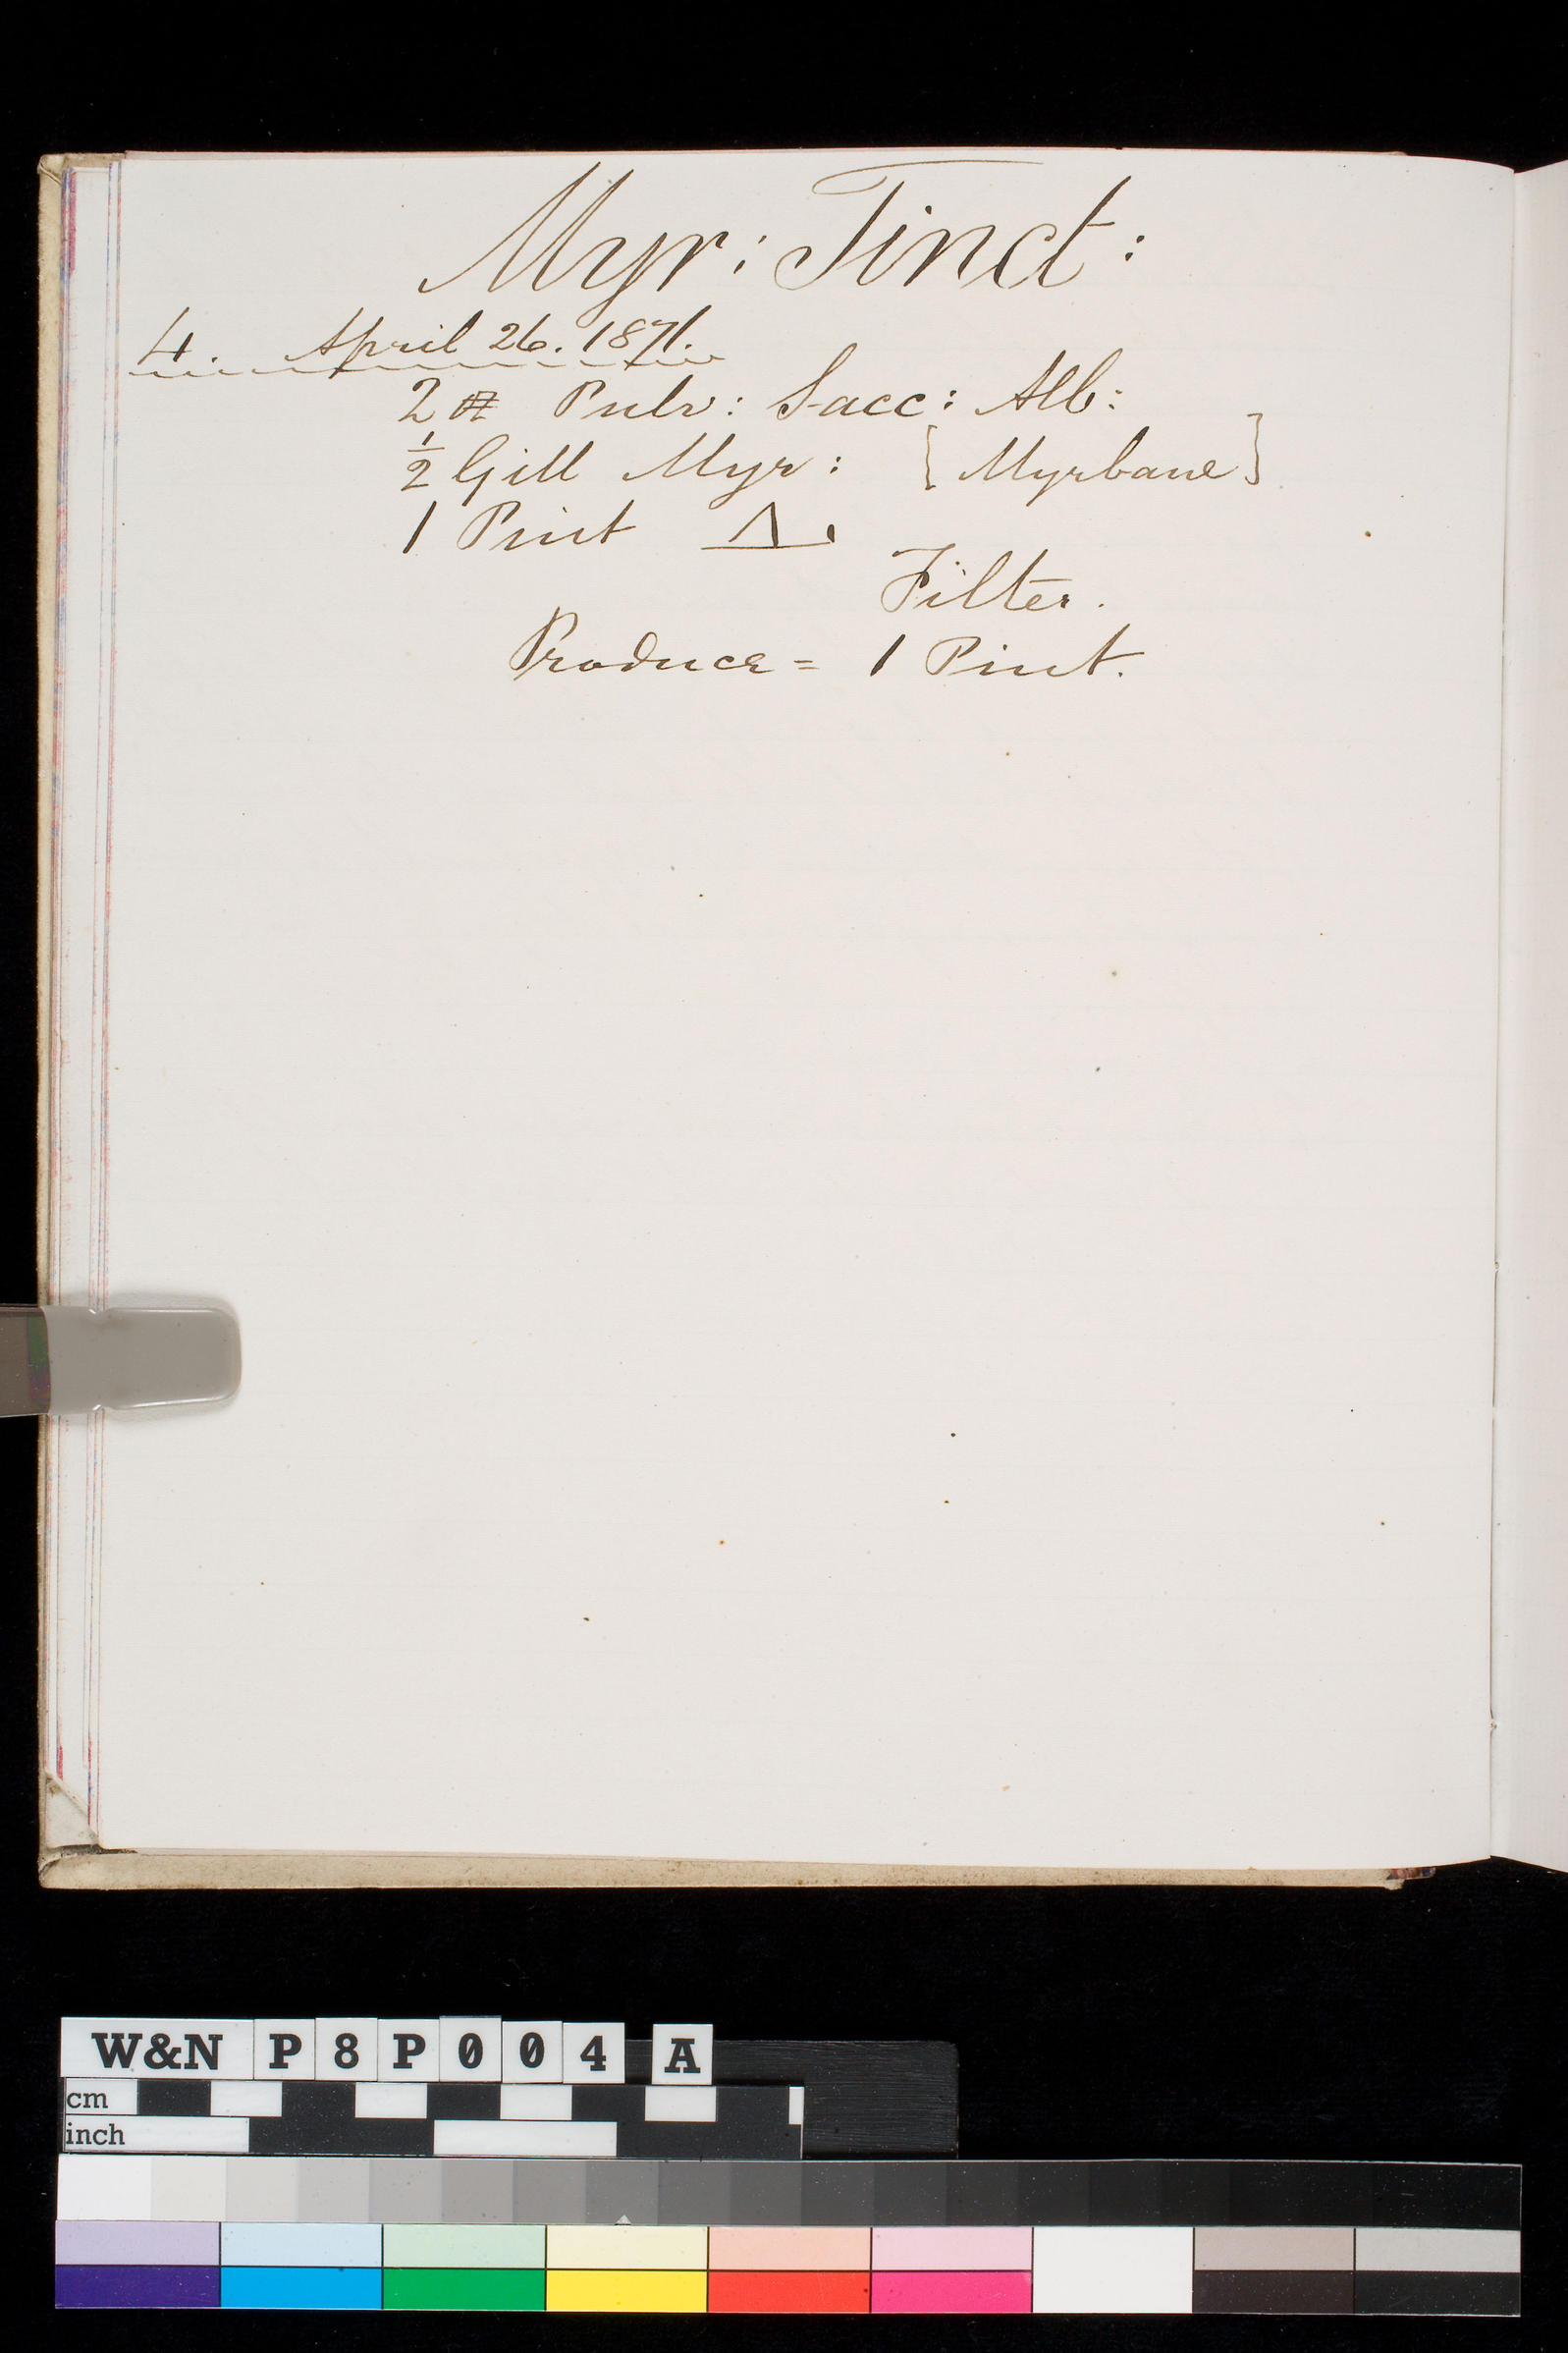 Myr: Tinct:
4. April 26. 1871.
2 ℔ Pulv: Sacc: Alb:
½ Gill Myr: [Myrbane]
1 Pint
Filter.
Produce = 1 Pint.
W&N P8P004 A
cm
inch